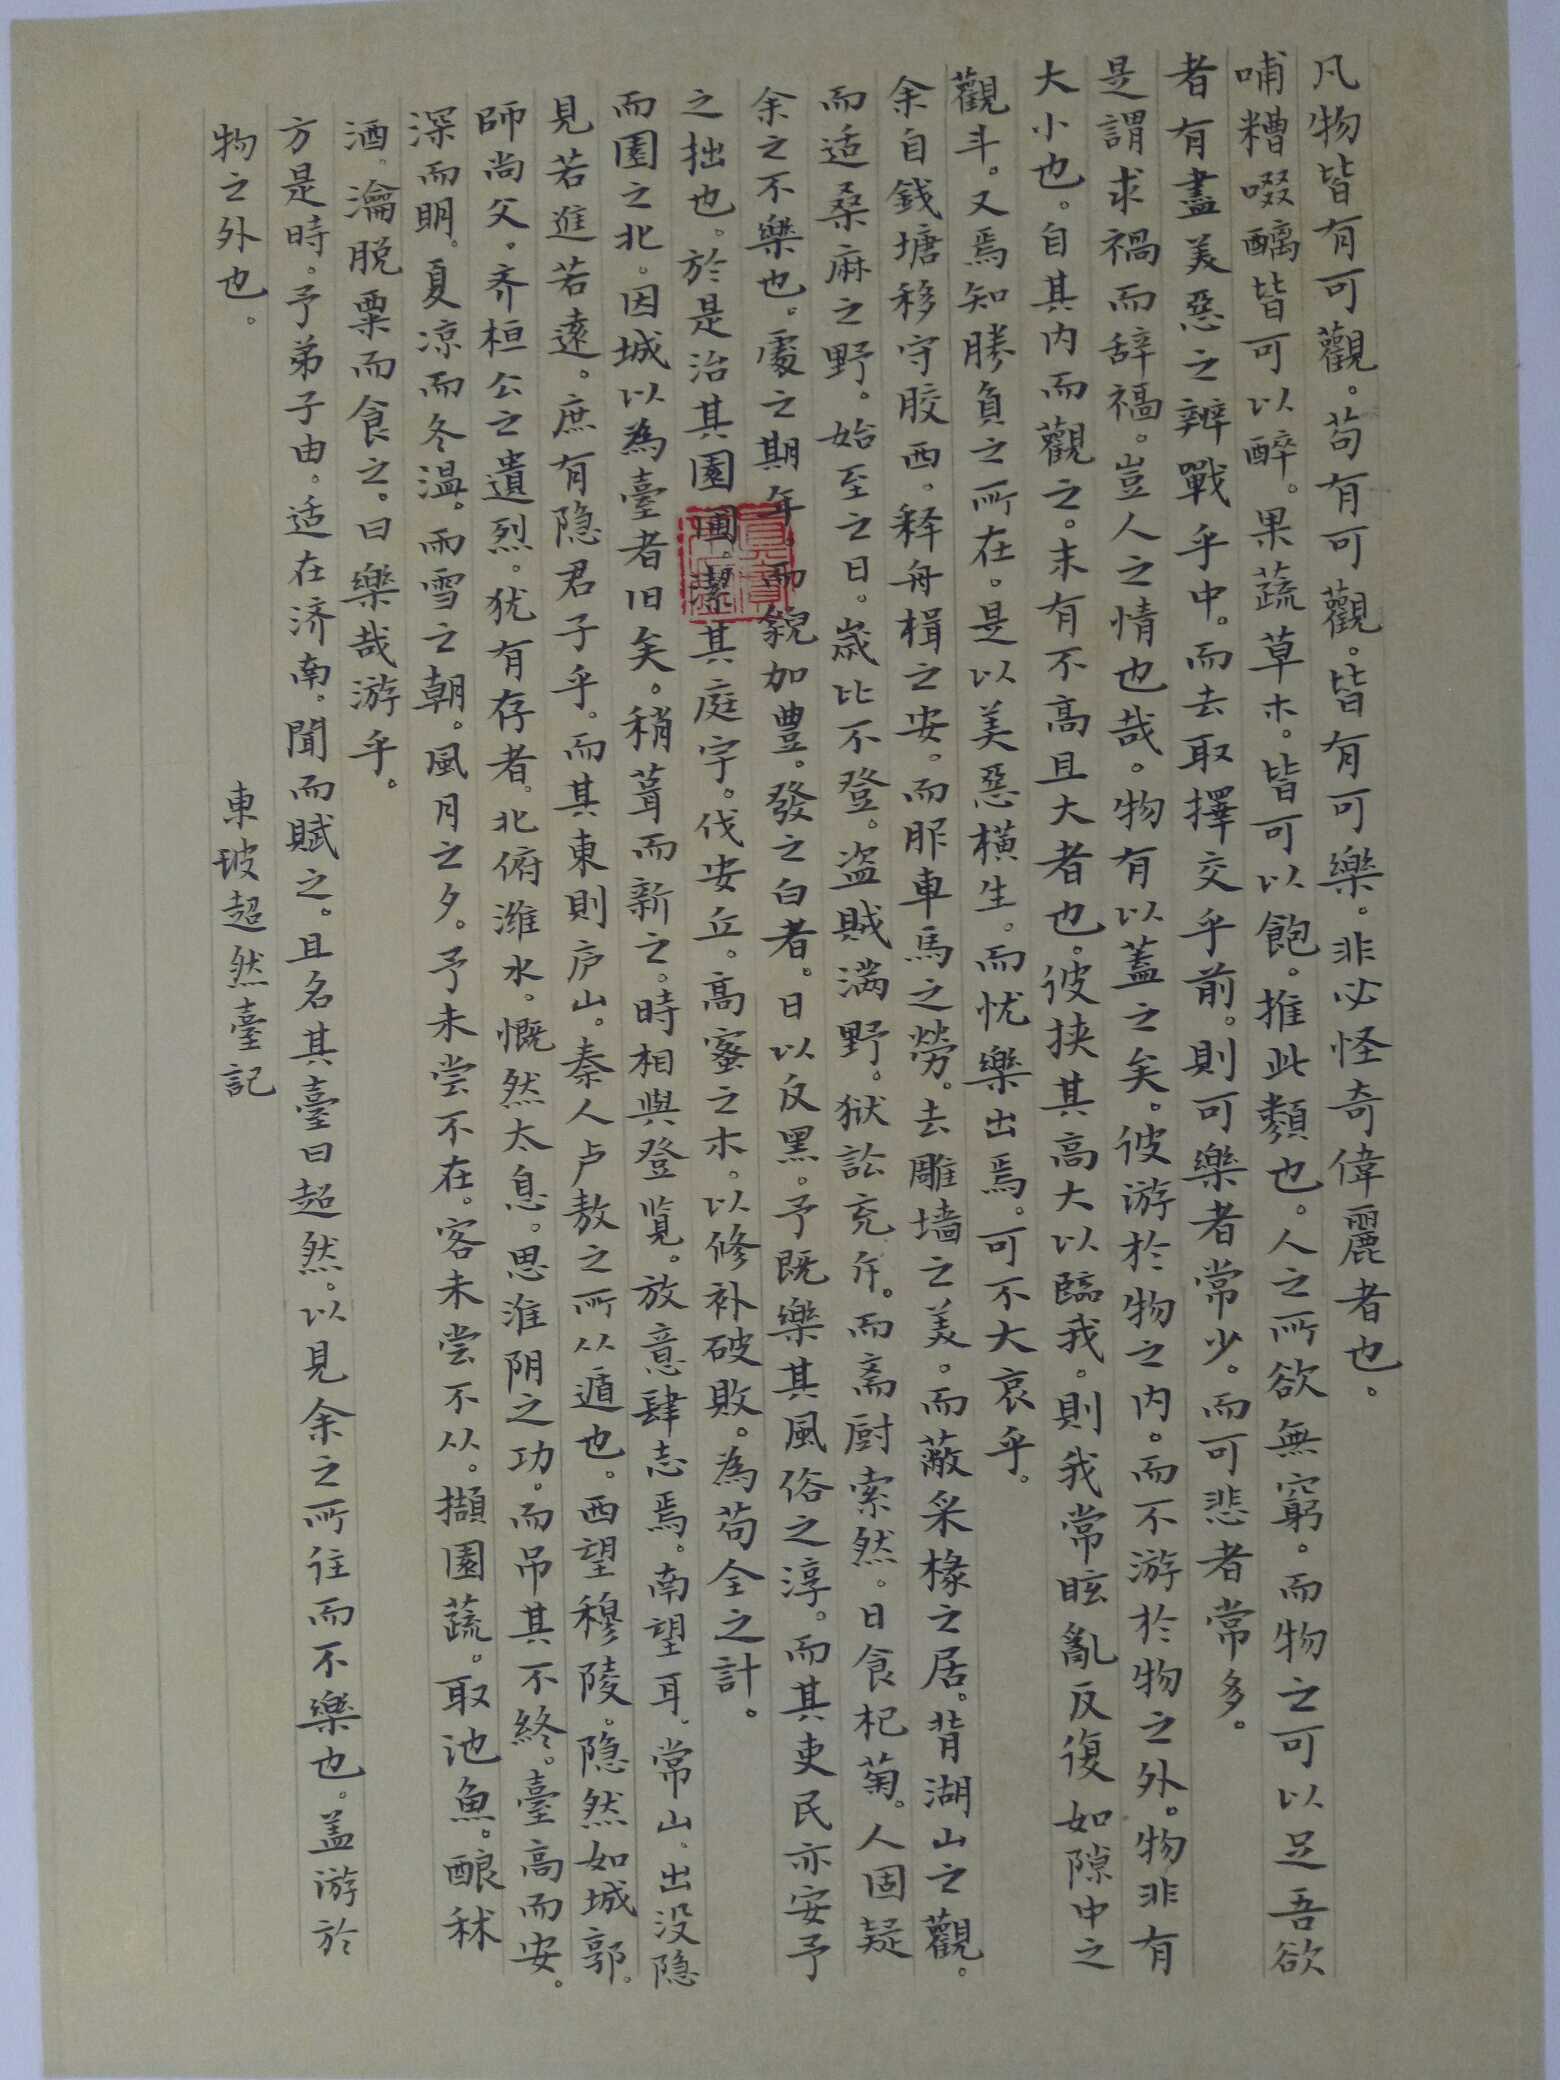 凡物皆有可觀。苟有可觀。皆有可樂。非必怪奇偉麗者也。
哺糟啜醨皆可以醉。果蔬草木。皆可以飽。推此類也。人之所欲無窮。而物之可以足吾欲
者有盡美惡之辨戰乎中。而去取擇交乎前。則可樂者常少。而可悲者常多。
是謂求禍而辞福。豈人之情也哉。物有以蓋之矣。彼游於物之内。而不游於物之外。物非有
大小也。自其内而觀之。未有不高且大者也。彼挟其高大以臨我。則我常眩亂反復如隙中之
觀斗。又焉知勝負之所在。是以美惡橫生。而忧樂出焉。可不大哀乎。
余自錢塘移守胶西。释舟楫之安。而服車馬之勞。去雕墙之美。而蔽采椽之居。背湖山之觀。
而适桑麻之野。始至之日。歲比不登。盗賊满野。狱訟充斥。而斋厨索然。日食杞菊。人固疑
余之不樂也。處之期年。而貌加豊。發之白者。日以反黑。予既樂其風俗之淳。而其吏民亦安予
之拙也。於是治其園圃。潔其庭宇。伐安丘。高蜜之木。以修补破敗。為苟全之計。
而園之北。因城以為臺者旧矣。稍葺而新之。時相與登览。放意肆志焉。南望耳。常山。出没隐
見若進若遠。庶有隐君子乎。而其東則庐山。秦人卢敖之所从遁也。西望穆陵。隐然如城郭。
師尚父。齐桓公之遺烈。犹有存者。北俯潍水。慨然太息。思淮阴之功。而吊其不終。臺高而安。
深而明。夏凉而冬温。雨雪之朝。風月之夕。予未尝不在。客未尝不从。擷園蔬。取池魚。酿秫
酒。瀹脱粟而食之。曰樂哉游乎。
方是時。予弟子由。适在济南。聞而賦之。且名其臺曰超然。以見余之所往而不樂也。盖游於
物之外也。
東坡超然臺記